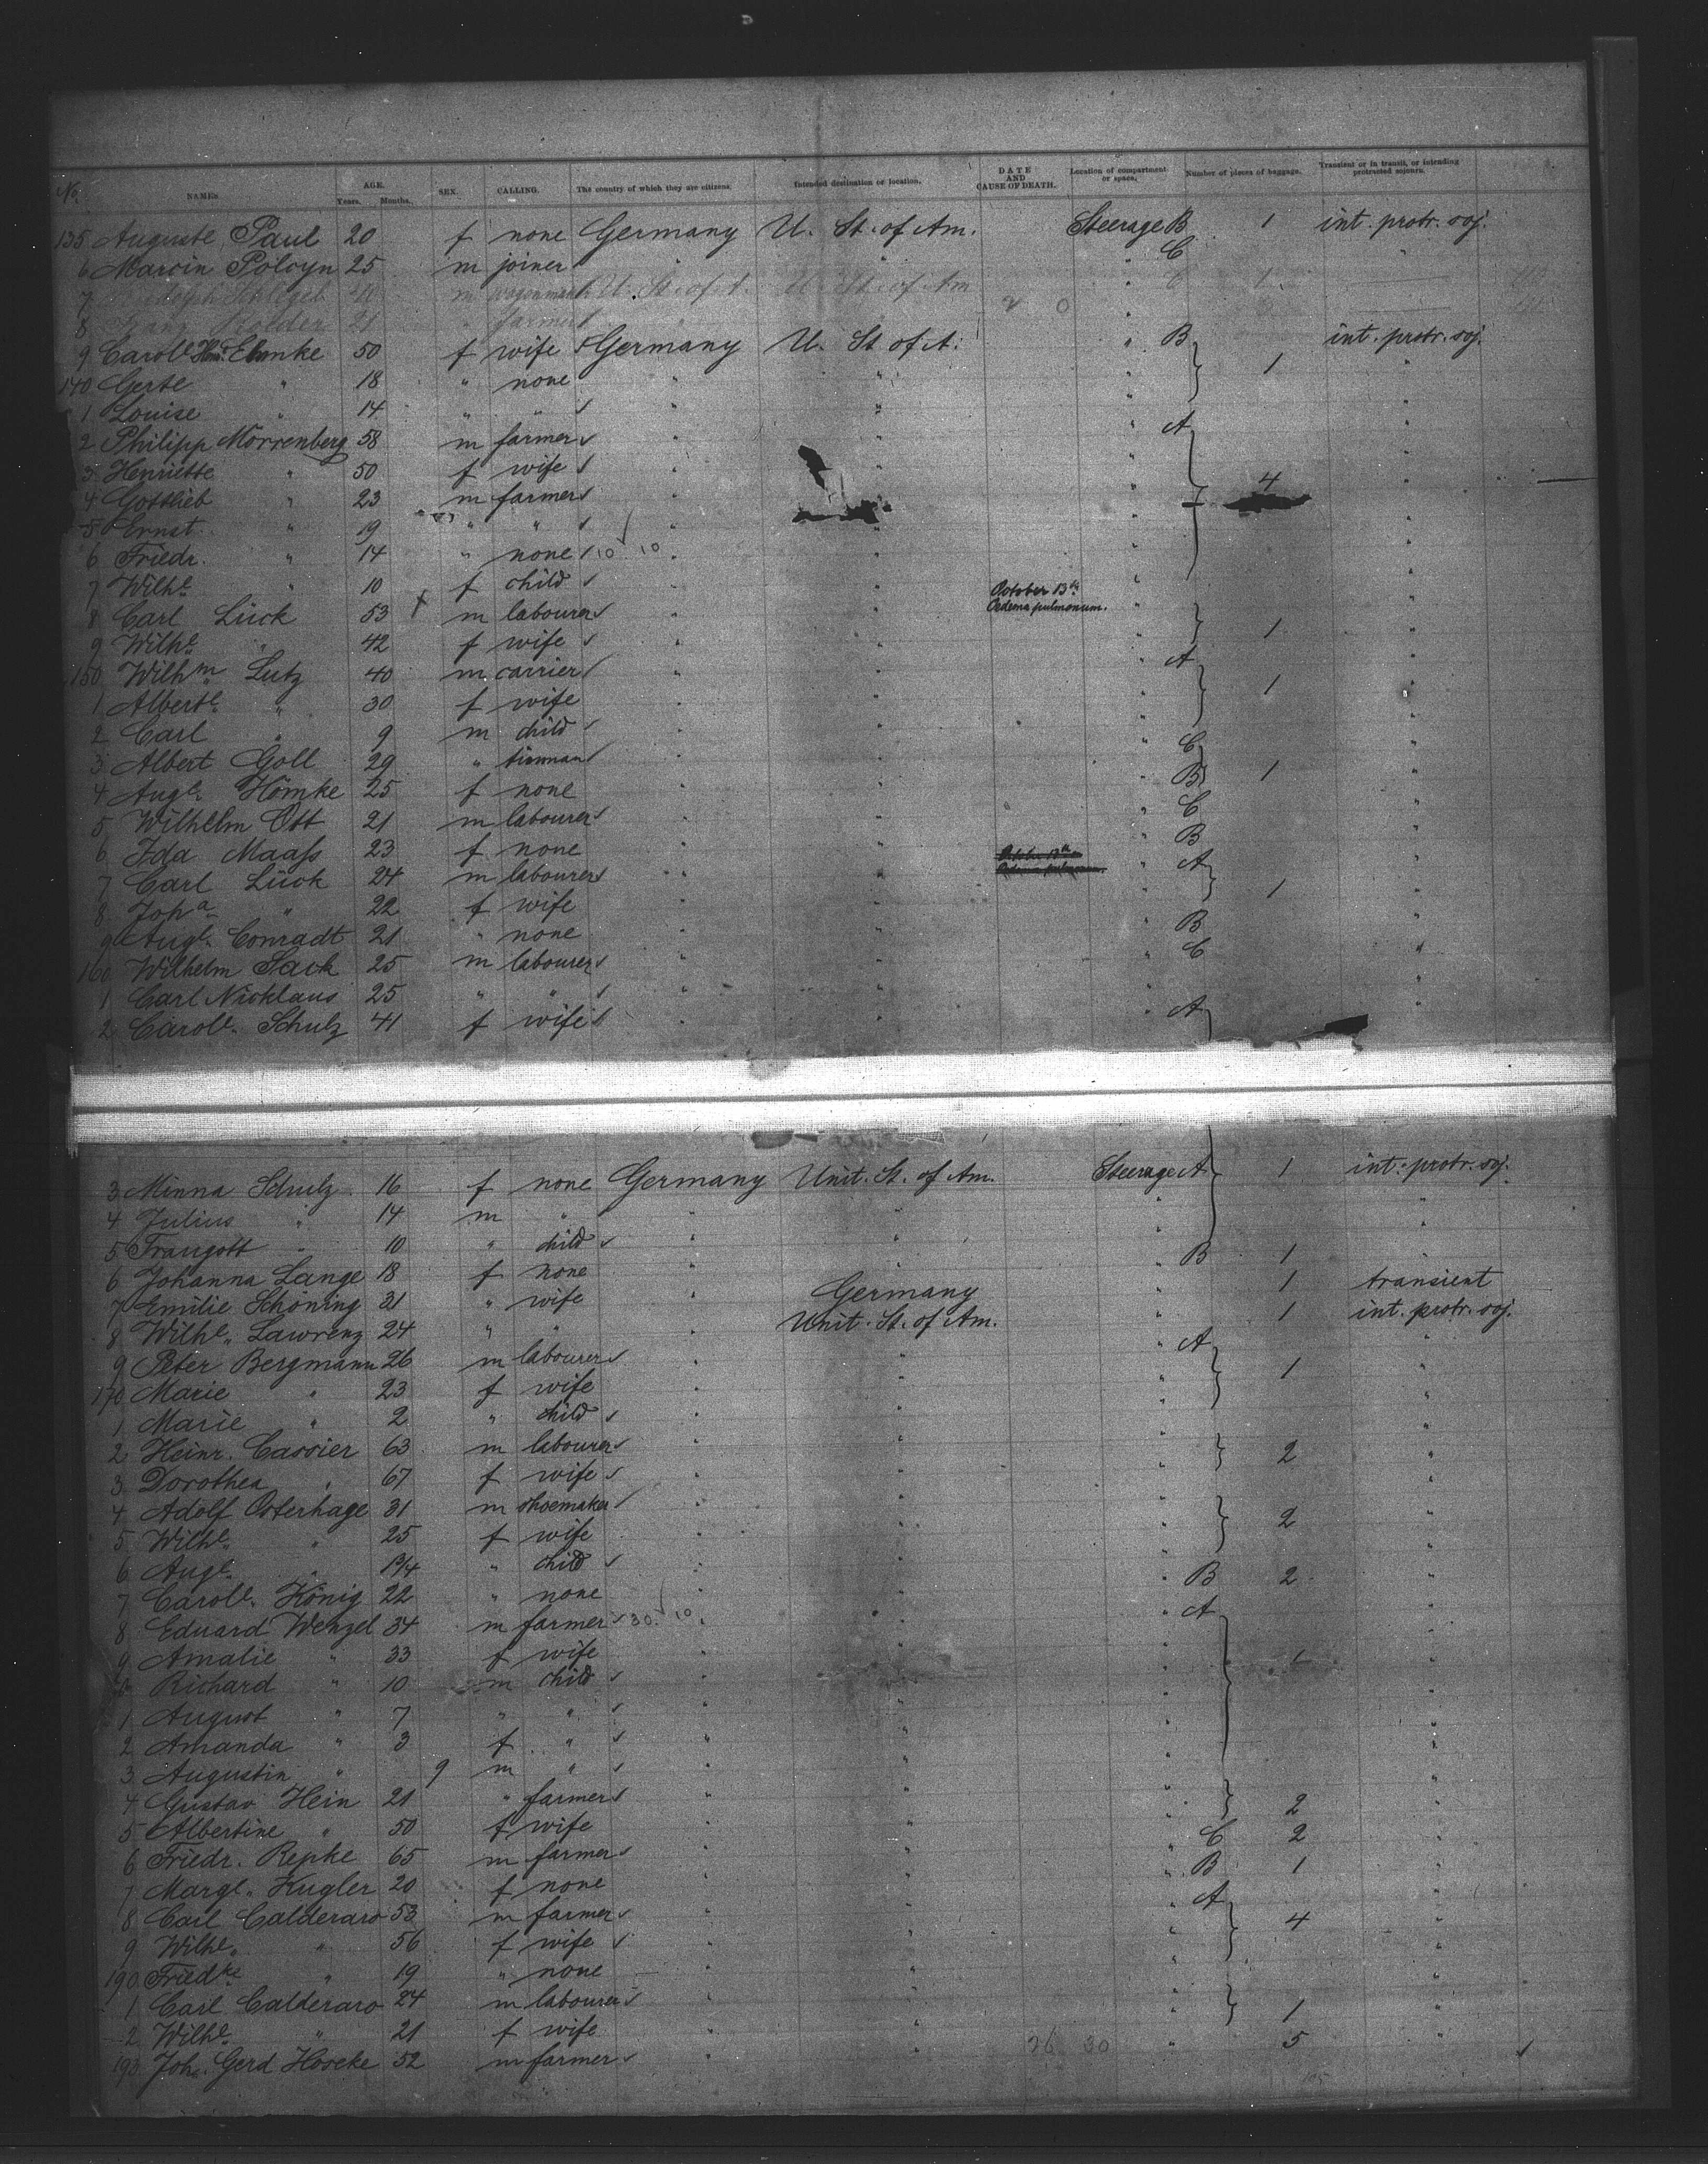 No. NAMES AGE. Years. Months. SEX. CALLING. The country of which they are citizens. Intended destination or location. DATE AND CAUSE OF DEATH. Location of compartment or space. Number of pieces of baggage. Transient or in transit, or intending protracted sojourn.
135 Auguste Paul 20 f none Germany U. St. of Am. Steerage B 1 int. protr. soj.
6 Marcin Polcyn 25 m joiner " " " C "
7 Rudolph Schlegel m U. St. of A. U. St. of Am " C 1
8 Franz 21 " farmer
9 Carol.e Ehmke 50 f wife Germany U. St. of A. " B int. protr. soj.
140 Gerte " 18 " none " " " 1 "
1 Louise " 14 " " " " " "
2 Philipp Morrenberg 58 m farmer " " " A "
3 Henriette " 50 f wife " " "
4 Gottlieb " 23 m farmer " " 4 "
5 Ernst " 19 " " " " " "
6 Friedr. " 14 " none 10 10 " " " "
7 Wilh.e " 10 f child " " " "
8 Carl Lück 53 m labourer " " October 13th Oedema pulmonum. " "
9 Wilh.e " 42 f wife " " " 1 "
150 Wilh.m Lutz 40 m carrier " " " A "
1 Albert.e " 30 f wife " " " 1 "
2 Carl " 9 m child " " " "
3 Albert Goll 29 " tinman " " " C "
4 Aug.e Hömke 25 f none " " " B 1 "
5 Wilhelm Ott 21 m labourer " " " C "
6 Ida Maass 23 f none " " " B "
7 Carl Lück 24 m labourer " " October 13th Oedema pulmonum. " A "
8 Joh.a " 22 f wife " " " 1 "
9 Aug.e Conradt 21 " none " " " B "
160 Wilhelm Sack 25 m labourer " " " C "
1 Carl Nicklaus 25 " " " " " "
2 Carol.e Schulz 41 f wife " " " A "
3 Minna Schulz 16 f none Germany Unit. St. of Am. Steerage A 1 int. protr. soj.
4 Julius " 14 m " " " " "
5 Traugott " 10 " child " " " "
6 Johanna Lange 18 f none " " " B 1 "
7 Emilie Schöning 31 " wife " Germany " 1 transient
8 Wilh.e Lawrenz 24 " " " Unit. St. of Am. " 1 int. protr. soj.
9 Peter Bergmann 26 m labourer " " " A "
170 Marie " 23 f wife " " " 1 "
1 Marie " 2 " child " " " "
2 Heinr. Cassier 63 m labourer " " " 2 "
3 Dorothea " 67 f wife " " " "
4 Adolf Osterhage 31 m shoemaker " " " 2 "
5 Wilh.e " 25 f wife " " " "
6 Aug.e " 1 3/4 " child " " " "
7 Carol.e König 22 " none " " " B 2 "
8 Eduard Wenzel 34 m farmer 30 10 " " " A "
9 Amalie " 33 f wife " " " 1 "
0 Richard " 10 m child " " " "
1 August " 7 " " " " " "
2 Amanda " 3 f " " " " "
3 Augustin " 9 m " " " " "
4 Gustav Hein 21 " farmer " " " 2 "
5 Albertine " 50 f wife " " " "
6 Friedr. Repke 65 m farmer " " " C 2 "
7 Marg.e Kugler 20 f none " " " B 1 "
8 Carl Calderaro 53 m farmer " " " A "
9 Wilh.e " 56 f wife " " " 4 "
190 Fried.ke " 19 " none " " " "
1 Carl Calderaro 24 m labourer " " " "
2 Wilh.e " 21 f wife " " " 1 "
193 Joh. Gerd Hoocke 52 m farmer " " 26 30 " 5 "